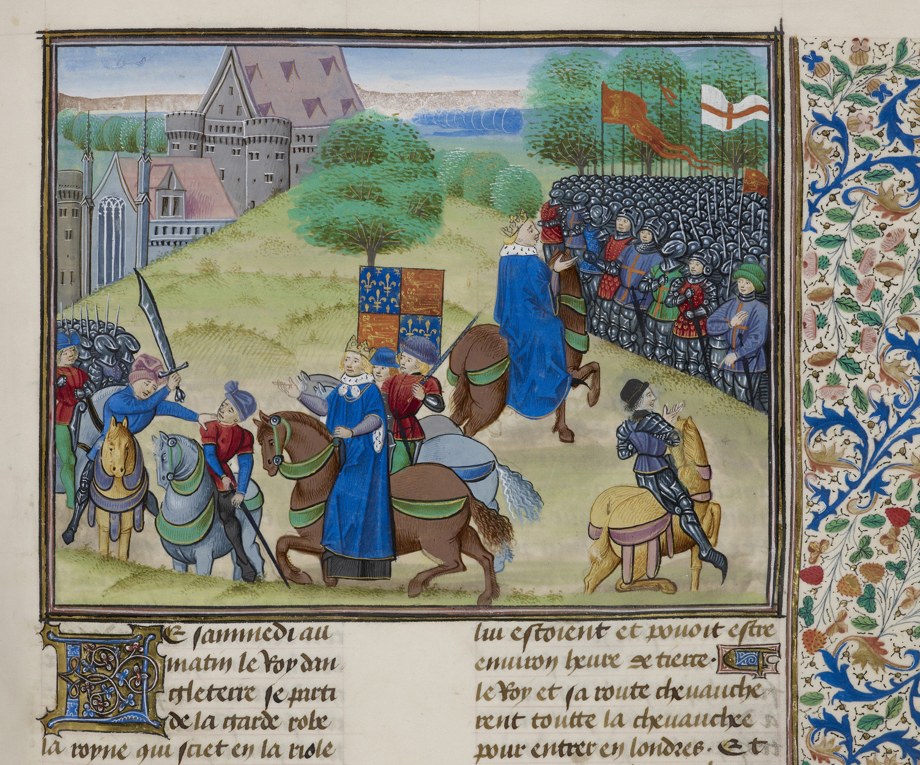 Le sammedi au
matin le Roy dan
gleterre se parti
de la garde robe
la royne qui sciet en la riole
lui estoient et povoit estre
environ heure de tierce.
le Roy et sa route chevauche
rent toutte la chevauchee
pour entrer en londres. Et